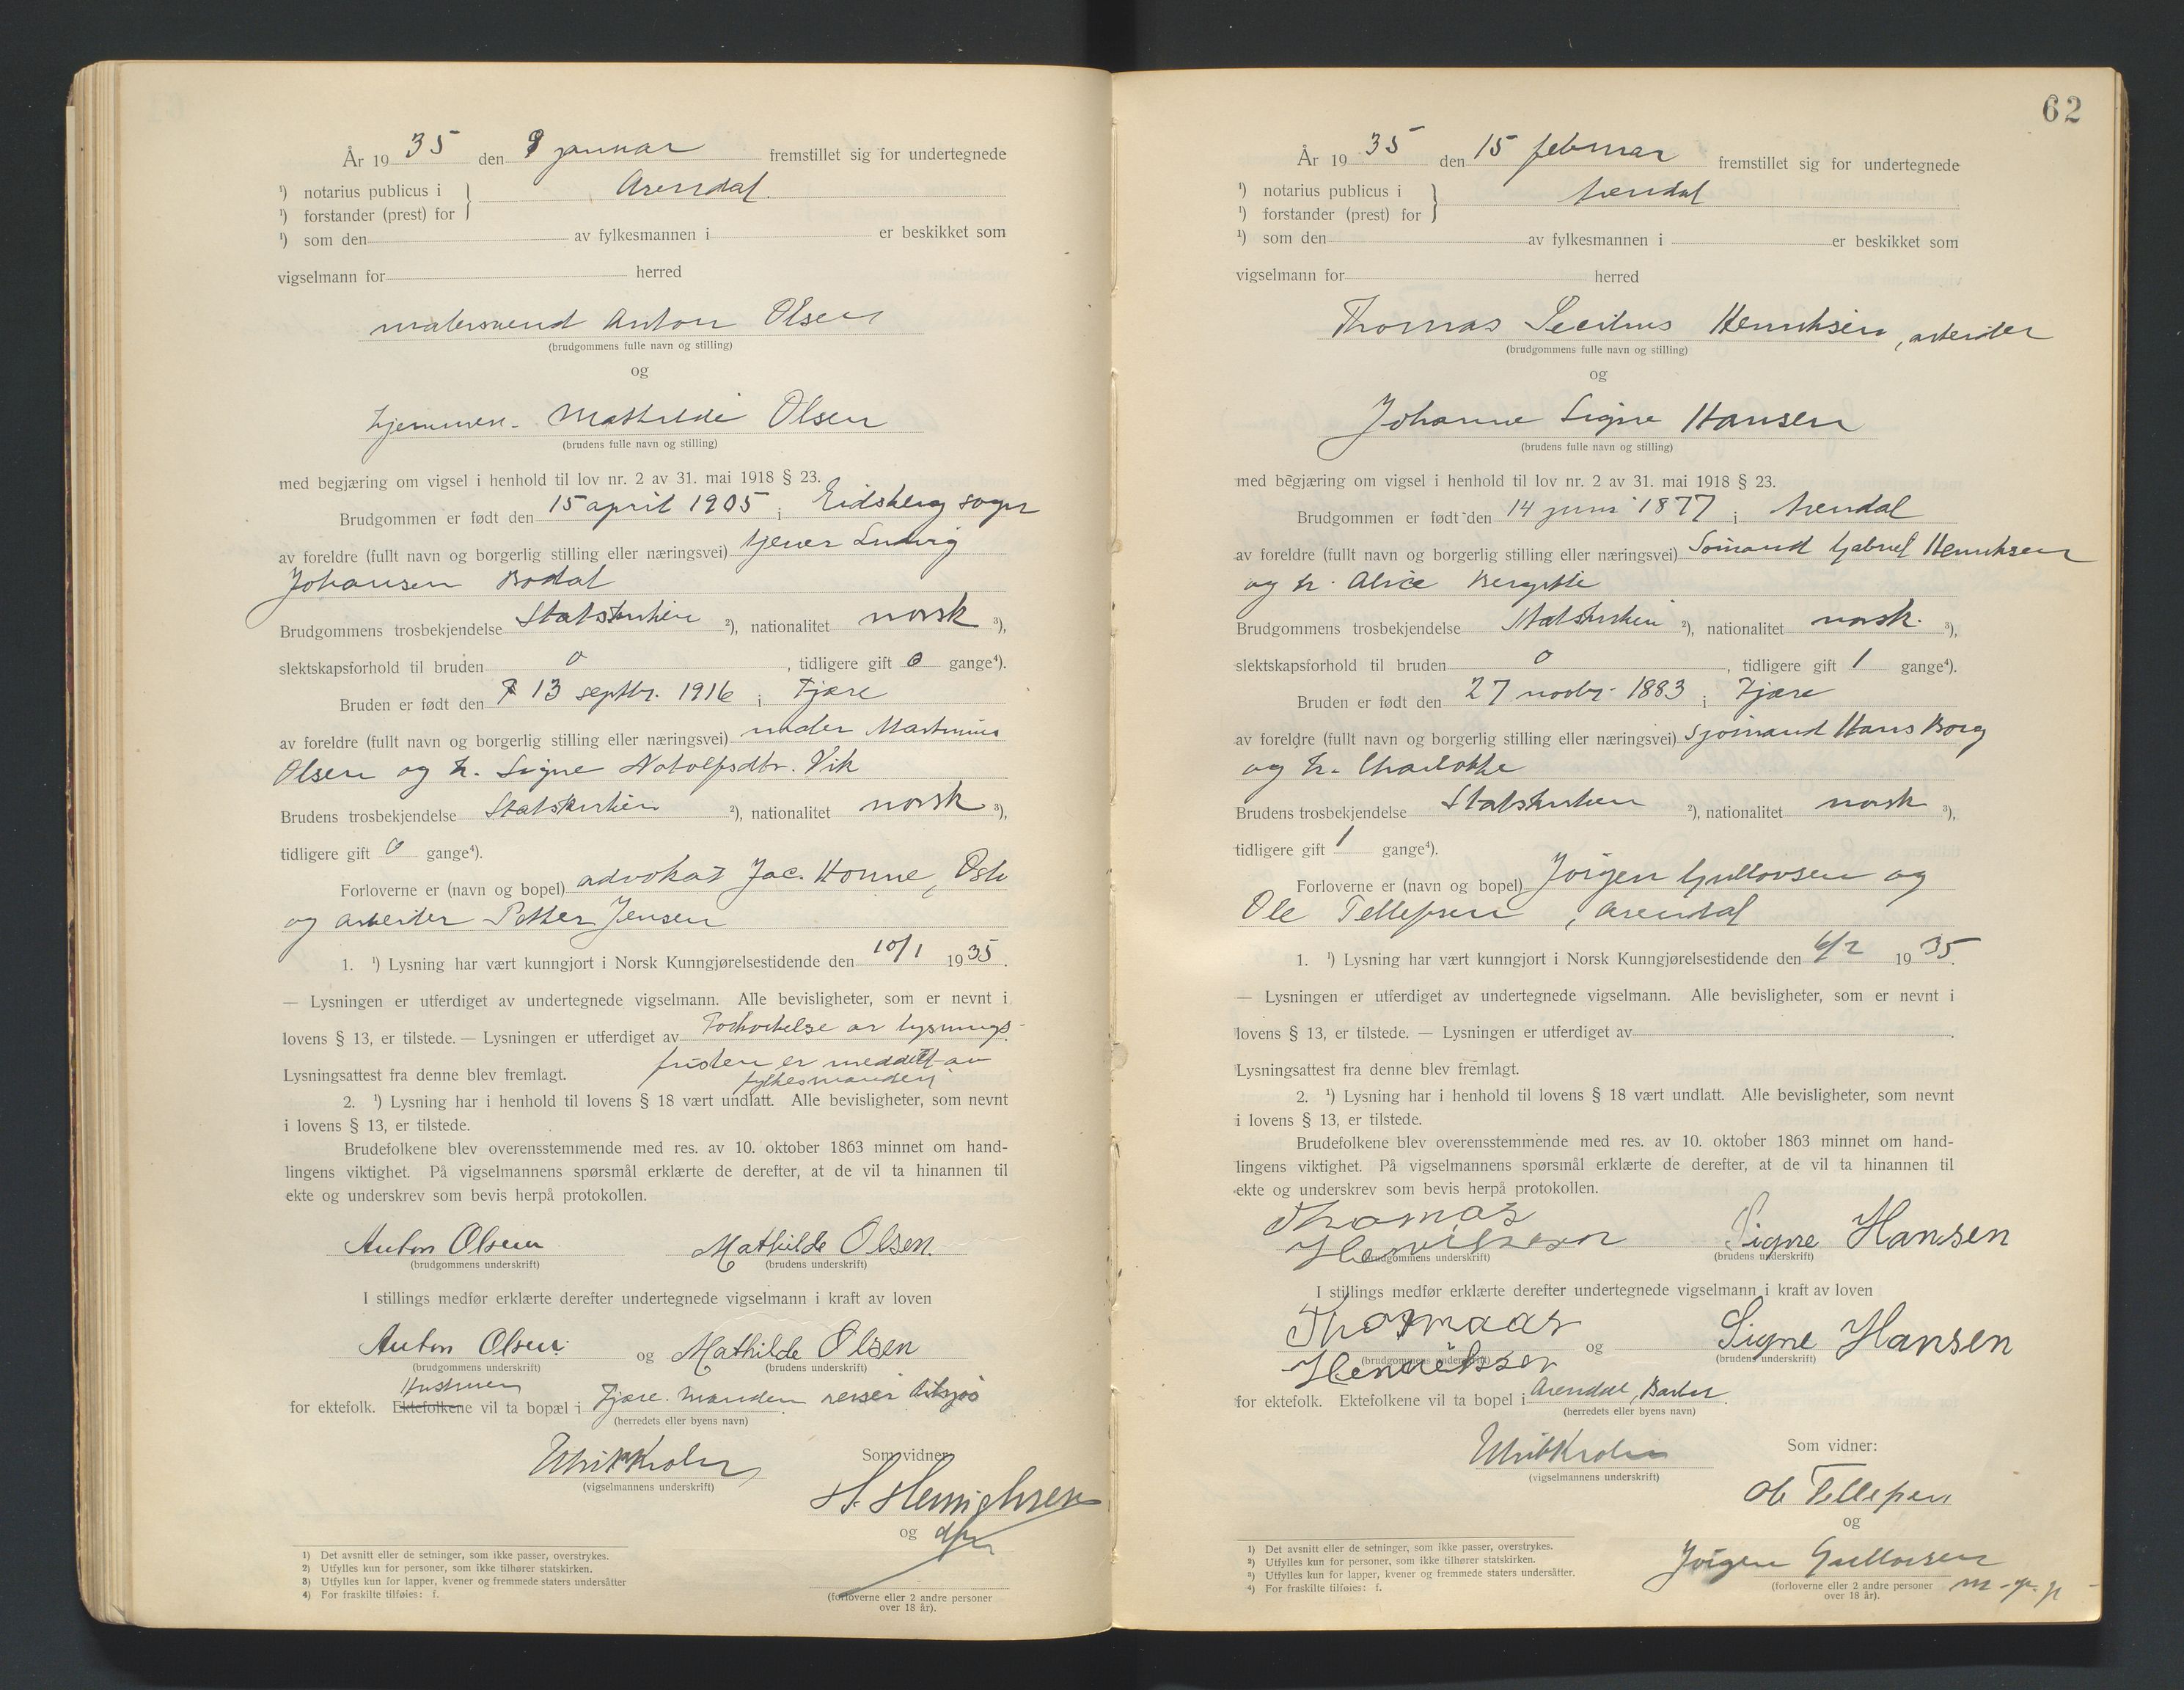 År 1935 den 9 januar fremstillet sig for undertegnede
¹) notarius publicus i } Arendal.
¹) forstander (prest) for
¹) som den av fylkesmannen i er beskikket som
vigselmann for herred
Anton Olsen
(brudgommens fulle navn og stilling)
og
hjemmev. Mathilde Olsen
(brudens fulle navn og stilling)
med begjæring om vigsel i henhold til lov nr. 2 av 31. mai 1918 § 23.
Brudgommen er født den 15 april 1905 i Eidsberg sogn
av foreldre (fullt navn og borgerlig stilling eller næringsvei) tjener Ludvig
Johansen Bodal
Brudgommens trosbekjendelse Statskirken ²), nationalitet norsk ³),
slektskapsforhold til bruden 0, tidligere gift 0 gange⁴).
Bruden er født den 13 septbr. 1916 i Fjære
av foreldre (fullt navn og borgerlig stilling eller næringsvei) Martinius
Olsen og h. Signe Notolfsdtr. Vik
Brudens trosbekjendelse Statskirken ²), nationalitet norsk ³),
tidligere gift 0 gange⁴).
Forloverne er (navn og bopel) advokat Jac. Honne, Oslo
og arbeider Petter Jensen
1. ¹) Lysning har vært kunngjort i Norsk Kunngjørelsestidende den 10/1 1935.
— Lysningen er utferdiget av undertegnede vigselmann. Alle bevisligheter, som er nevnt i
lovens § 13, er tilstede. — Lysningen er utferdiget av Forkortelse av lysnings-
fristen er meddelt av
Lysningsattest fra denne blev fremlagt. fylkesmanden
2. ¹) Lysning har i henhold til lovens § 18 vært undlatt. Alle bevisligheter, som nevnt
i lovens § 13, er tilstede.
Brudefolkene blev overensstemmende med res. av 10. oktober 1863 minnet om hand-
lingens viktighet. På vigselmannens spørsmål erklærte de derefter, at de vil ta hinannen til
ekte og underskrev som bevis herpå protokollen.
Anton Olsen Mathilde Olsen.
(brudgommens underskrift) (brudens underskrift)
I stillings medfør erklærte derefter undertegnede vigselmann i kraft av loven
Anton Olsen og Mathilde Olsen
(brudgommens underskrift) (brudens underskrift)
Hustruen
for ektefolk. Ektefolkene vil ta bopæl i Fjære. Manden reiser tilsjøs
(herredets eller byens navn)
Som vidner
(vigselmannens underskrift)
H. Henrichsen
og
(forloverne eller 2 andre personer
over 18 år).
1) Det avsnitt eller de setninger, som ikke passer, overstrykes.
2) Utfylles kun for personer, som ikke tilhører statskirken.
3) Utfylles kun for lapper, kvener og fremmede staters undersåtter
4) For fraskilte tilføies: f.
62
År 1935 den 15 februar fremstillet sig for undertegnede
¹) notarius publicus i } Arendal
¹) forstander (prest) for
¹) som den av fylkesmannen i er beskikket som
vigselmann for herred
Thomas Henriksen, arbeider
(brudgommens fulle navn og stilling)
og
Johanne Signe Hansen
(brudens fulle navn og stilling)
med begjæring om vigsel i henhold til lov nr. 2 av 31. mai 1918 § 23.
Brudgommen er født den 14 juni 1877 i Arendal
av foreldre (fullt navn og borgerlig stilling eller næringsvei) Sømand Gabriel Henriksen
og h. Alice Bergitte
Brudgommens trosbekjendelse Statskirken ²), nationalitet norsk. ³),
slektskapsforhold til bruden 0, tidligere gift 1 gange⁴).
Bruden er født den 27 novbr. 1883 i Fjære
av foreldre (fullt navn og borgerlig stilling eller næringsvei) Sjømand Hans Borg
og h. Charlotte
Brudens trosbekjendelse Statskirken ²), nationalitet norsk ³),
tidligere gift 1 gange⁴).
Forloverne er (navn og bopel) Jørgen Gullovsen og
Ole Tellefsen, Arendal
1. ¹) Lysning har vært kunngjort i Norsk Kunngjørelsestidende den 6/2 1935.
— Lysningen er utferdiget av undertegnede vigselmann. Alle bevisligheter, som er nevnt i
lovens § 13, er tilstede. — Lysningen er utferdiget av
Lysningsattest fra denne blev fremlagt.
2. ¹) Lysning har i henhold til lovens § 18 vært undlatt. Alle bevisligheter, som nevnt
i lovens § 13, er tilstede.
Brudefolkene blev overensstemmende med res. av 10. oktober 1863 minnet om hand-
lingens viktighet. På vigselmannens spørsmål erklærte de derefter, at de vil ta hinannen til
ekte og underskrev som bevis herpå protokollen.
Thomas
Henriksen Signe Hansen
(brudgommens underskrift) (brudens underskrift)
I stillings medfør erklærte derefter undertegnede vigselmann i kraft av loven
Thomaas
Henriksen og Signe Hansen
(brudgommens underskrift) (brudens underskrift)
for ektefolk. Ektefolkene vil ta bopel i Arendal, Barbu.
(herredets eller byens navn)
Som vidner:
(vigselmannens underskrift)
Ole Tellefsen
og
Jørgen Gullovsen
m. p. p.
(forloverne eller 2 andre personer
over 18 år).
1) Det avsnitt eller de setninger, som ikke passer, overstrykes.
2) Utfylles kun for personer, som ikke tilhører statskirken.
3) Utfylles kun for lapper, kvener og fremmede staters undersåtter.
4) For fraskilte tilføies: f.